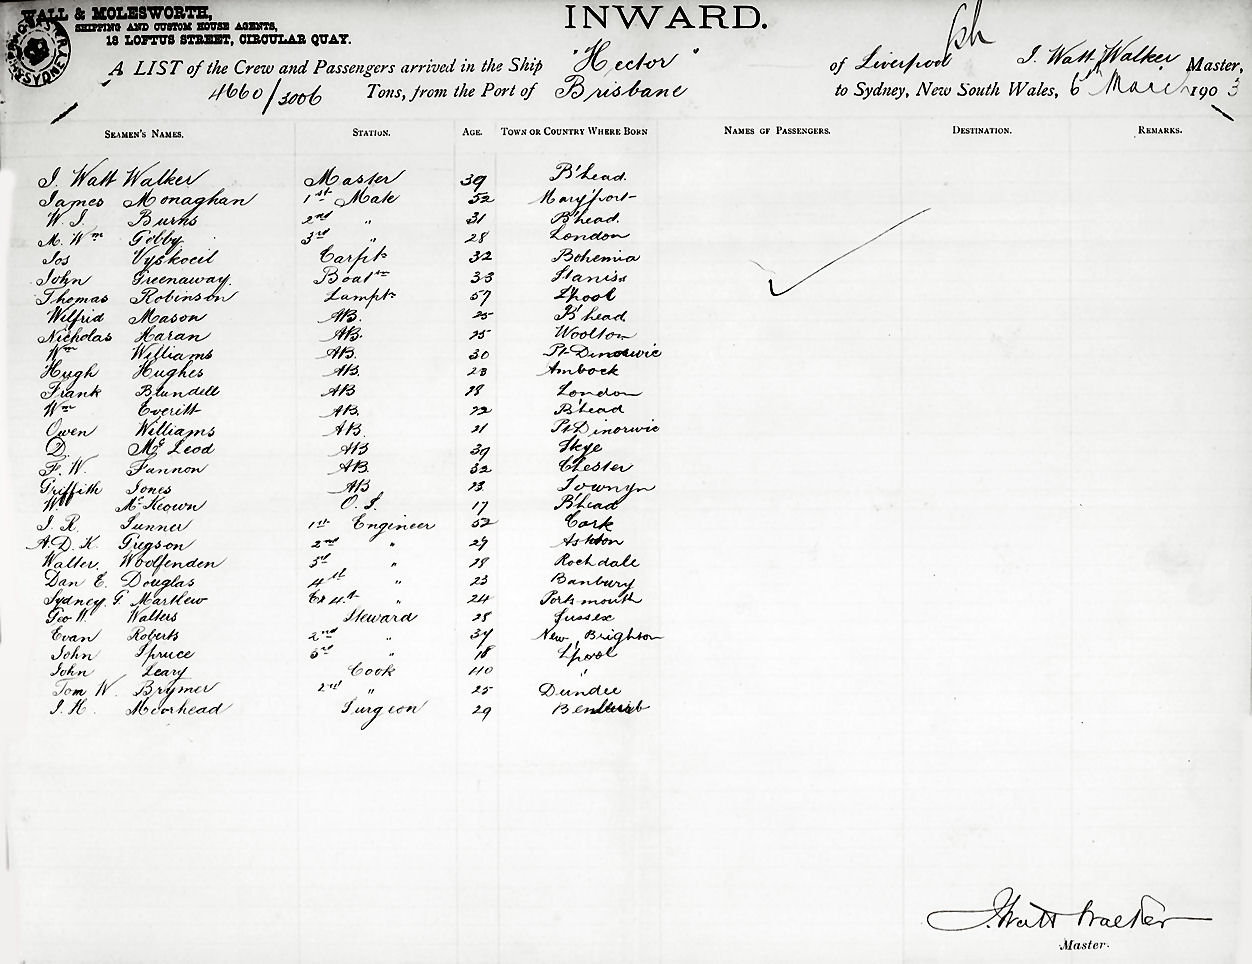 WALL & MOLESWORTH,
SHIPPING AND CUSTOM HOUSE AGENTS,
18 LOFTUS STREET, CIRCULAR QUAY.
SYDNEY
INWARD.
A LIST of the Crew and Passengers arrived in the Ship "Hector" of Liverpool J. Watt Walker Master,
4660/3006 Tons, from the Port of Brisbane to Sydney, New South Wales, 6th March 1903
SEAMEN'S NAMES. STATION. AGE. TOWN OR COUNTRY WHERE BORN NAMES OF PASSENGERS. DESTINATION. REMARKS.
J. Watt Walker Master 39 B'head.
James Monaghan 1st Mate 52 Maryport
W. J. Burns 2nd " 31 B'head.
M. Wm Gebby 3rd " 28 London
Jos Vyskocil Carptr 32 Bohemia
John Greenaway. Boatsn 33
Thomas Robinson Lampt 57 L'pool
Wilfrid Mason AB. 25 B'head
Nicholas Haran AB. 25 Woolton
Wm Williams AB. 30 Pt Dinorwic
Hugh Hughes AB. 23
Frank Blundell AB 28 London
Wm Everitt AB. 22 B'head
Owen Williams AB. 21 Pt Dinorwic
D. McLeod AB 39 Skye
F. W. Fannon AB. 32 Chester
Griffith Jones AB 23 Towyn
McKeown O.S. 17 B'head
J. R. Sunner 1st Engineer 52 Cork
A. D. K. Gregson 2nd " 29 Ashton
Walter Woolfenden 3rd " 28 Rochdale
Dan E. Douglas 4th " 23 Banbury
Sydney G. Martlew Ex 4th " 24 Portsmouth
Geo W. Walters Steward 28 Sussex
Evan Roberts 2nd " 34 New Brighton
John Spruce 3rd " 18 L'pool
John Leary Cook 40 "
Tom W. Brymer 2nd " 25 Dundee
J. H. Moorhead Surgeon 29
J. Watt Walker
Master.